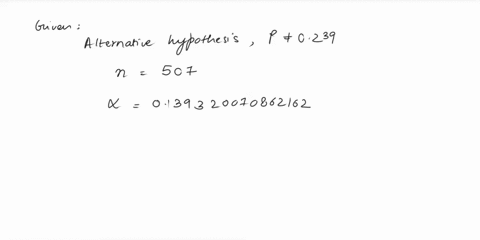 Given:
Alternative hypothesis, P ≠ 0.239
n = 507
α = 0.139320070862162